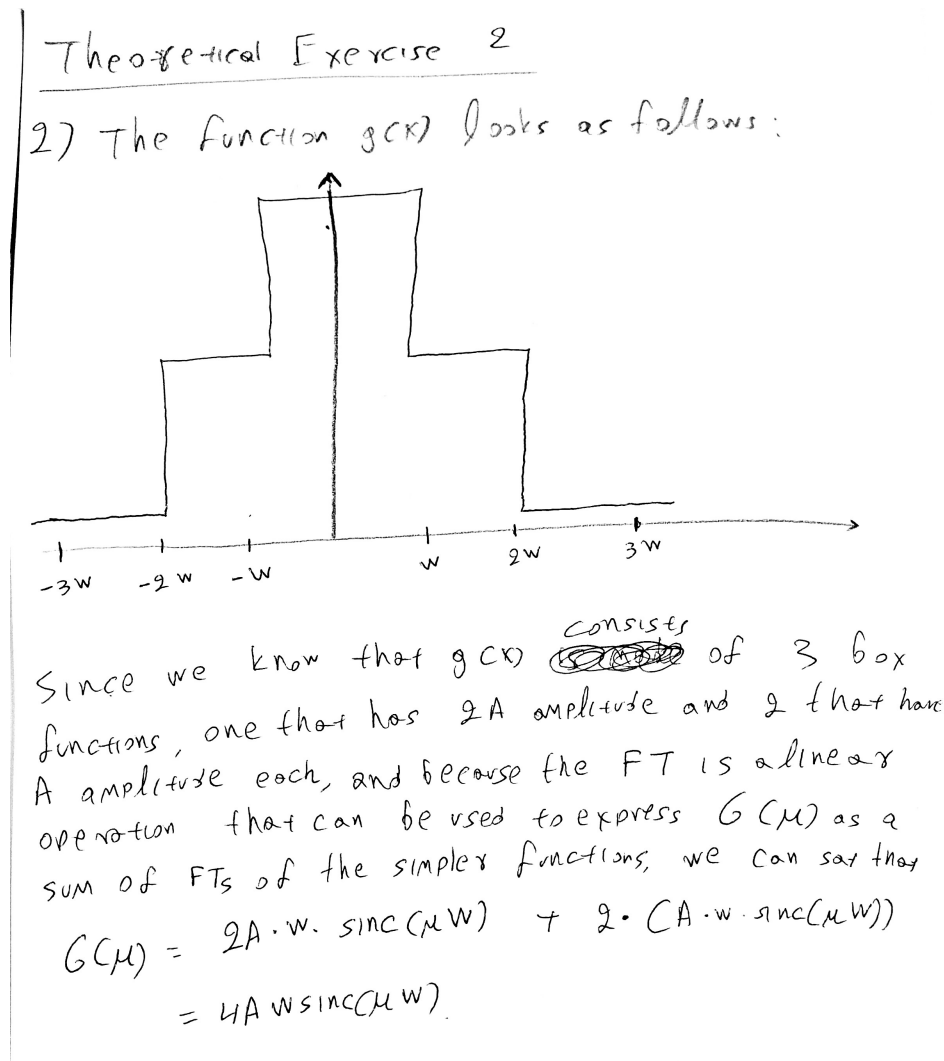 Theoretical Exercise 2
2) The function g(x) looks as follows:
-3W -2W -W W 2W 3W
Since we know that g(x) consists of 3 box
functions, one that has 2A amplitude and 2 that have
A amplitude each, and because the FT is a linear
operation that can be used to express G(μ) as a
sum of FTs of the simpler functions, we can say that
G(μ) = 2A·W·sinc(μW) + 2·(A·W·sinc(μW))
= 4AWsinc(μW)